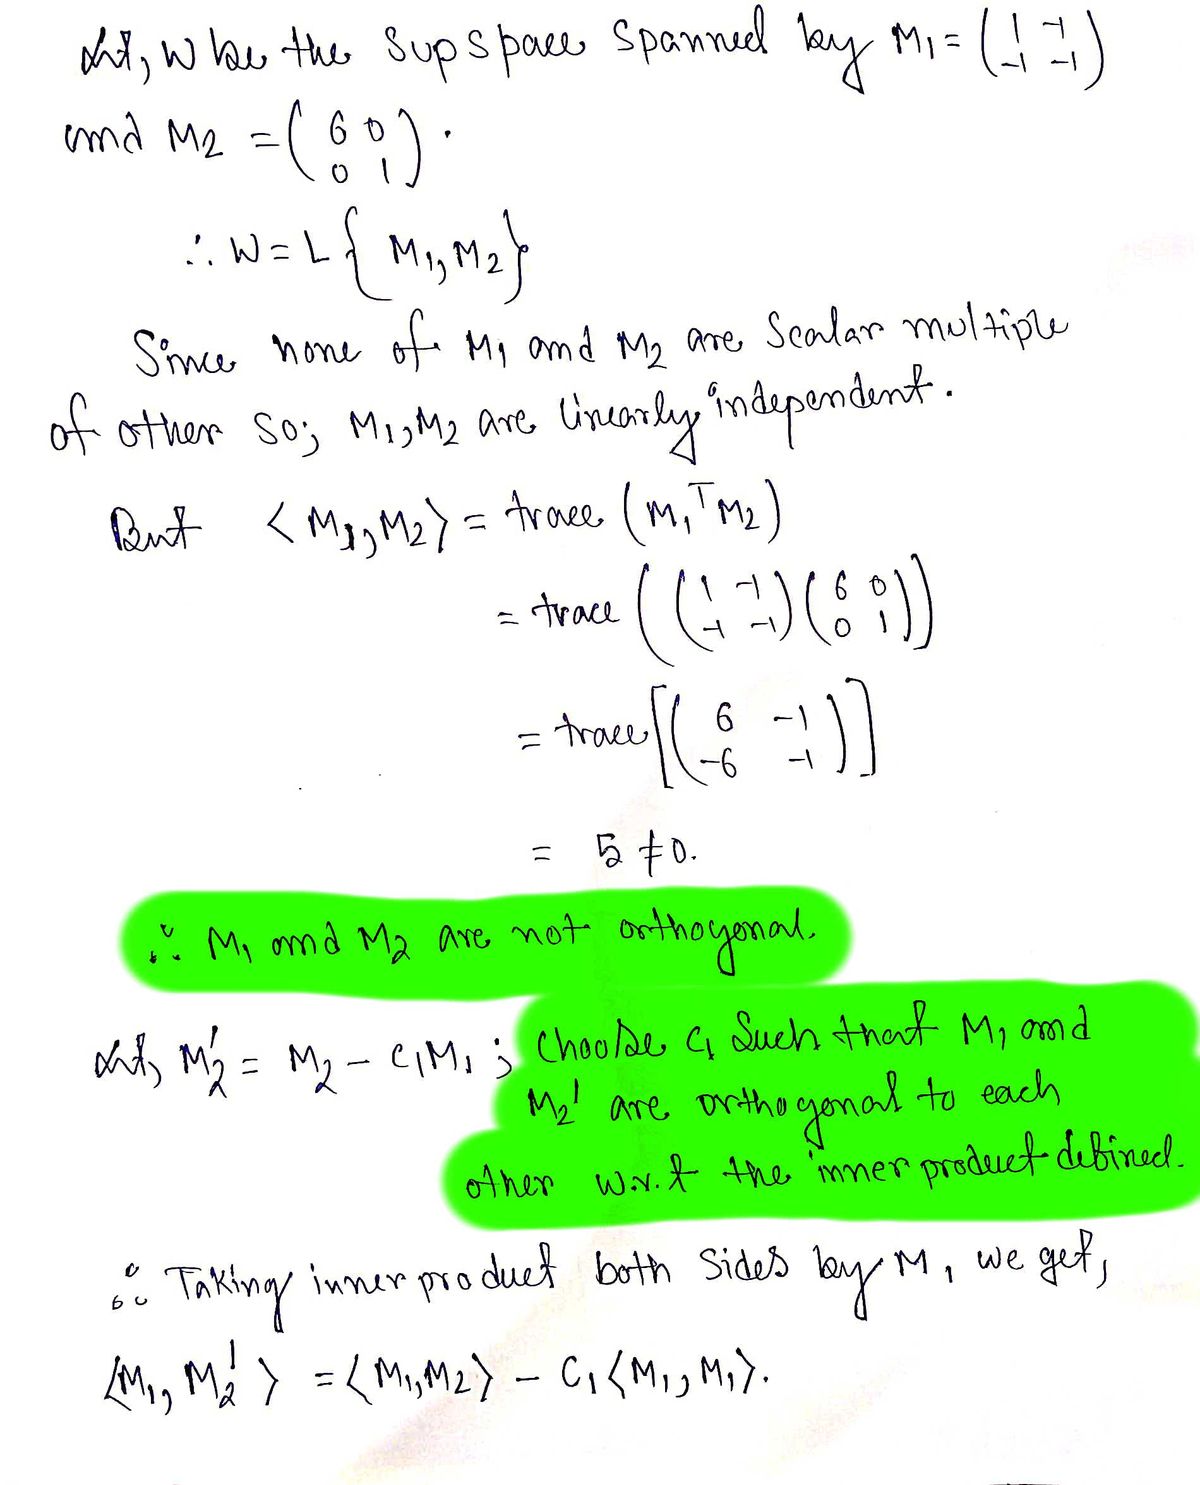 Let, W be the Supspace Spanned by M₁ = (1 -1; -1 -1)
and M₂ = (6 0; 0 1).
∴ W = L{M₁, M₂}
Since none of M₁ and M₂ are Scalar multiple
of other so; M₁, M₂ are linearly independent.
But ⟨M₁, M₂⟩ = trace (M₁ᵀM₂)
= trace ((1 -1; -1 -1)(6 0; 0 1))
= trace[(6 -1; -6 -1)]
= 5 ≠ 0.
∴ M₁ and M₂ are not orthogonal.
Let, M₂' = M₂ - C₁M₁ ; Choose C₁ Such that M₁ and
M₂' are orthogonal to each
other w.r.t the inner product defined.
∴ Taking inner product both Sides by M₁ we get,
⟨M₁, M₂'⟩ = ⟨M₁, M₂⟩ - C₁⟨M₁, M₁⟩.